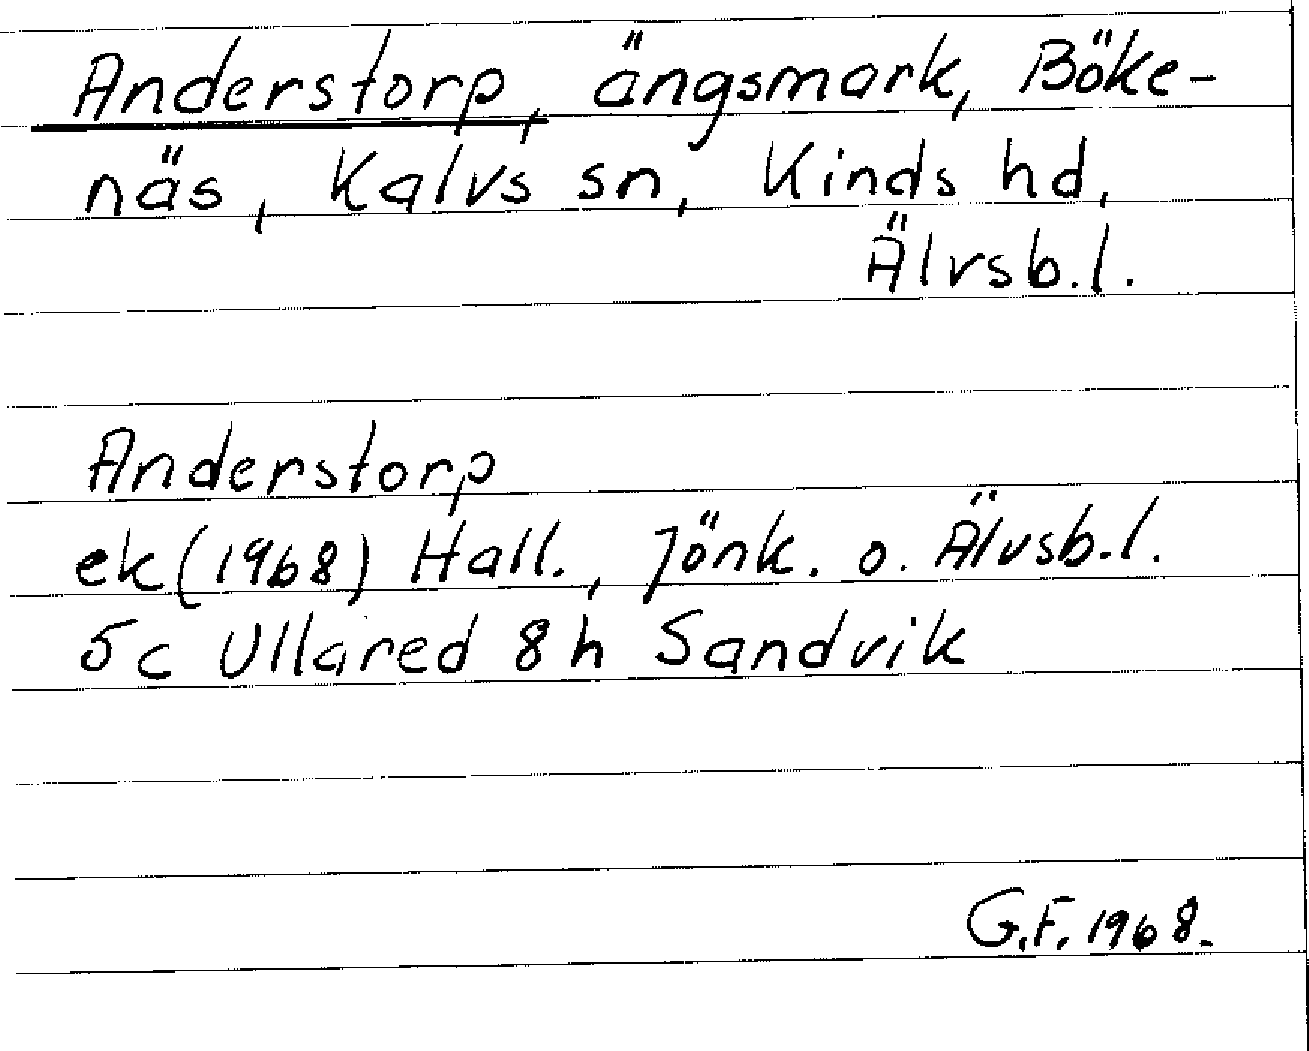 Anderstorp, ängsmark, Böke-
näs, Kalvs sn, Kinds hd,
Älvsb.l.
Anderstorp
ek(1968) Hall., Jönk. o. Älvsb.l.
5c Ullared 8h Sandvik
G.F. 1968.